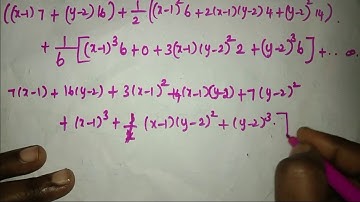 ((x-1)7 + (y-2)16) + 1/2 ((x-1)²6 + 2(x-1)(y-2)4 + (y-2)²14).
+ 1/6 [(x-1)³6 + 0 + 3(x-1)(y-2)²2 + (y-2)³6] + ...∞
7(x-1) + 16(y-2) + 3(x-1)² + 4(x-1)(y-2) + 7(y-2)²
+ (x-1)³ + (x-1)(y-2)² + (y-2)³.]